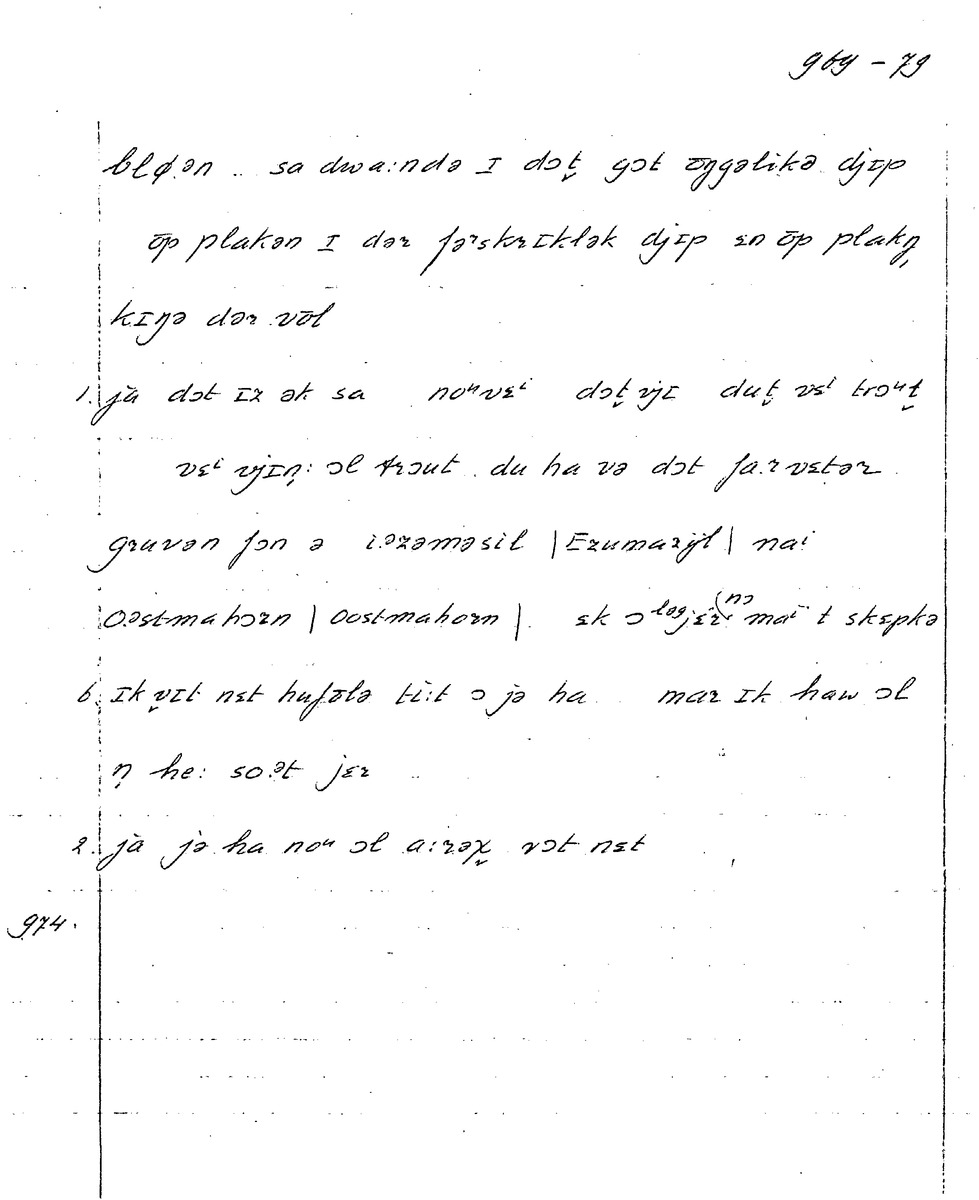 969 - 79
blø.ən .. sa dwa:ndə ɪ dɔt̬ gɔt ōŋgəlikə djɪp
ōp plakən ɪ dər fərskrɪklək djɪp ɛn ōp plakŋ̩
kɪŋə dər vōl
1. jà dɔt ɪz ək sa noᵘvɛⁱ dɔt̬ vjɪ dut̬ vɛⁱ trɔᵘt̬
vɛⁱ vjɪn̩: ɔl trɔut. du ha və dɔt fa.rvɛtər
gruvən fɔn ə i.əzəməsil | Ezumazijl | naⁱ
O.əstmahɔrn | Oostmahorn |. ɛk ɔ jɛr (nɔ maⁱ t skɛpkə
6. ɪk v̬ɪt nɛt hufōlə ti:t ɔ jə ha .. mar ɪk haw ɔl
n̩ he: so.ət jɛr ..
2. jà jə ha noᵘ ɔl a:rəχ̬ vɔt nɛt
974.